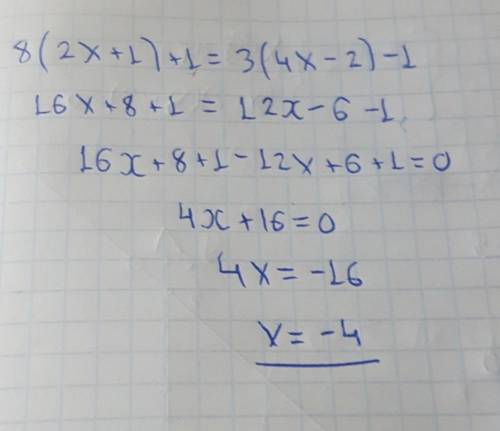 8(2x+1)+1=3(4x-2)-1
16x+8+1=12x-6-1
16x+8+1-12x+6+1=0
4x+16=0
4x=-16
x=-4